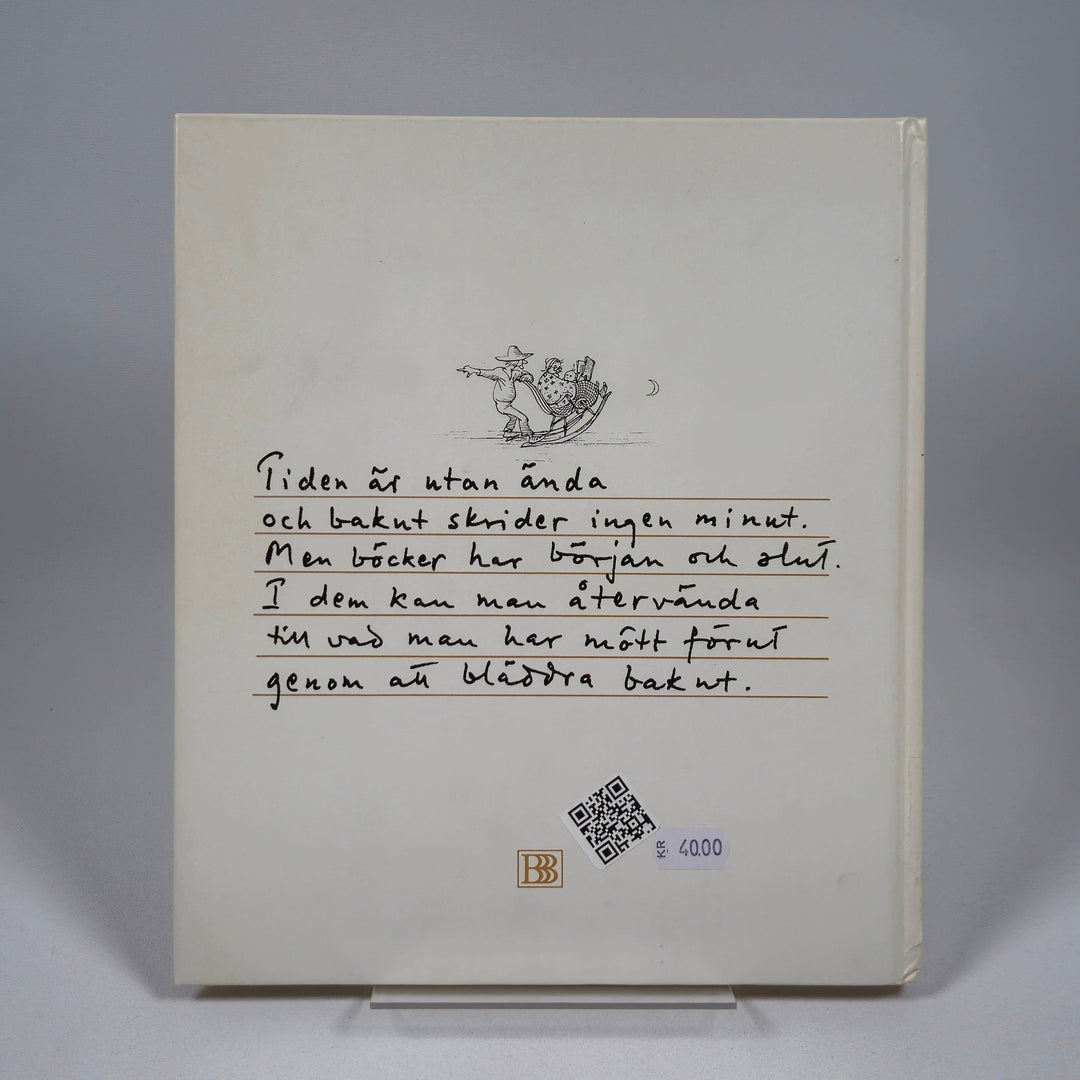 Tiden är utan ända
och bakut skrider ingen minut.
Men böcker har början och slut.
I dem kan man återvända
till vad man har mött förut
genom att bläddra bakut.
KR 40.00
BBB